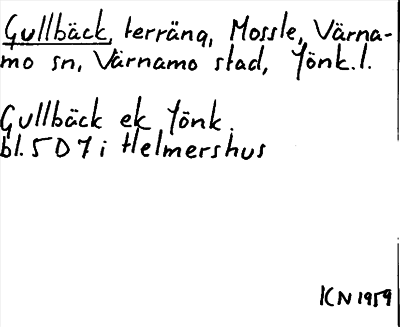 Gullbäck, terräng, Mossle, Värna-
mo sn, Värnamo stad, Jönk.l.
Gullbäck ek Jönk.
bl. 5 D 7 i Helmershus
KN 1959